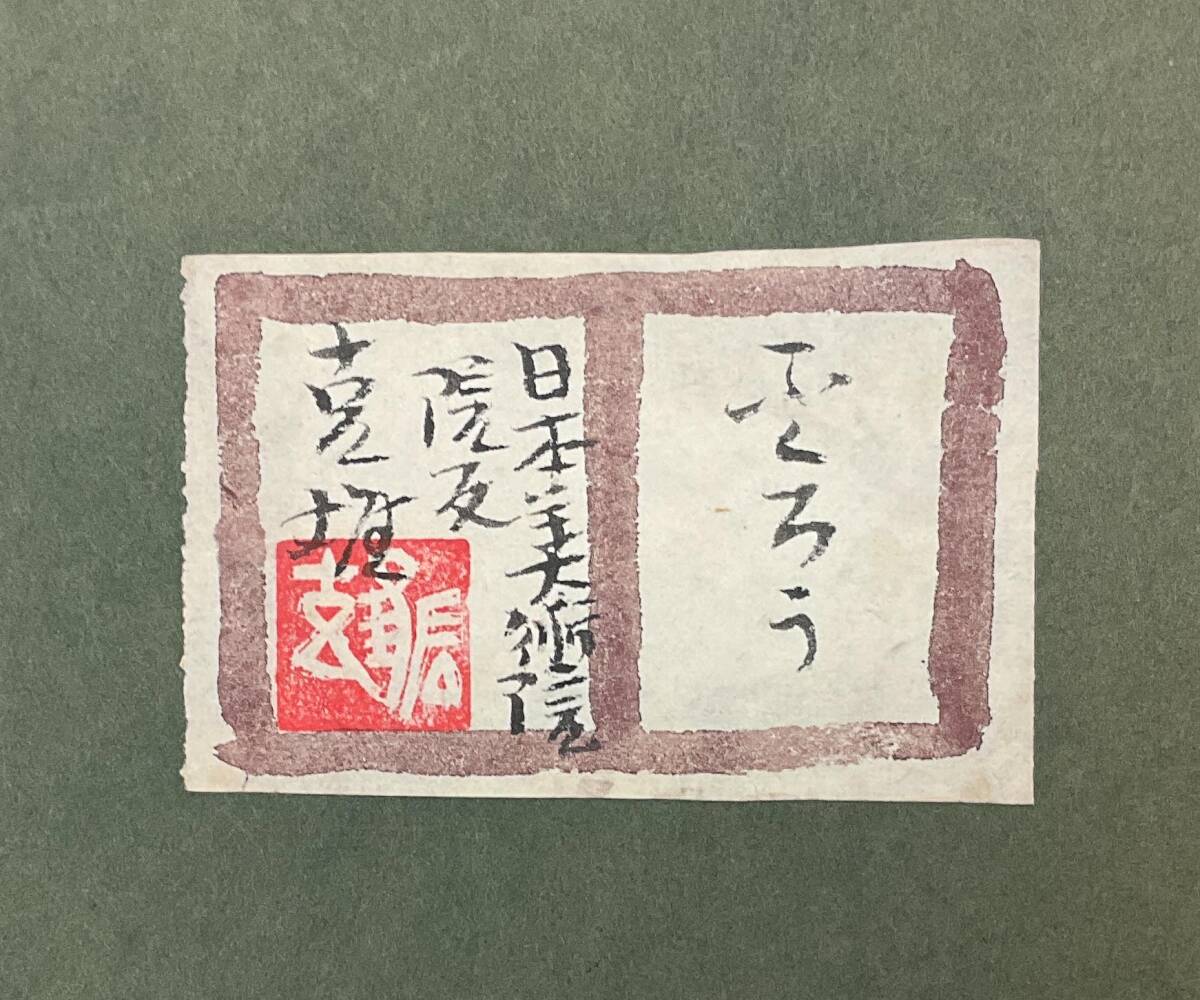 ふくろう
日本美術院
院友
克雄